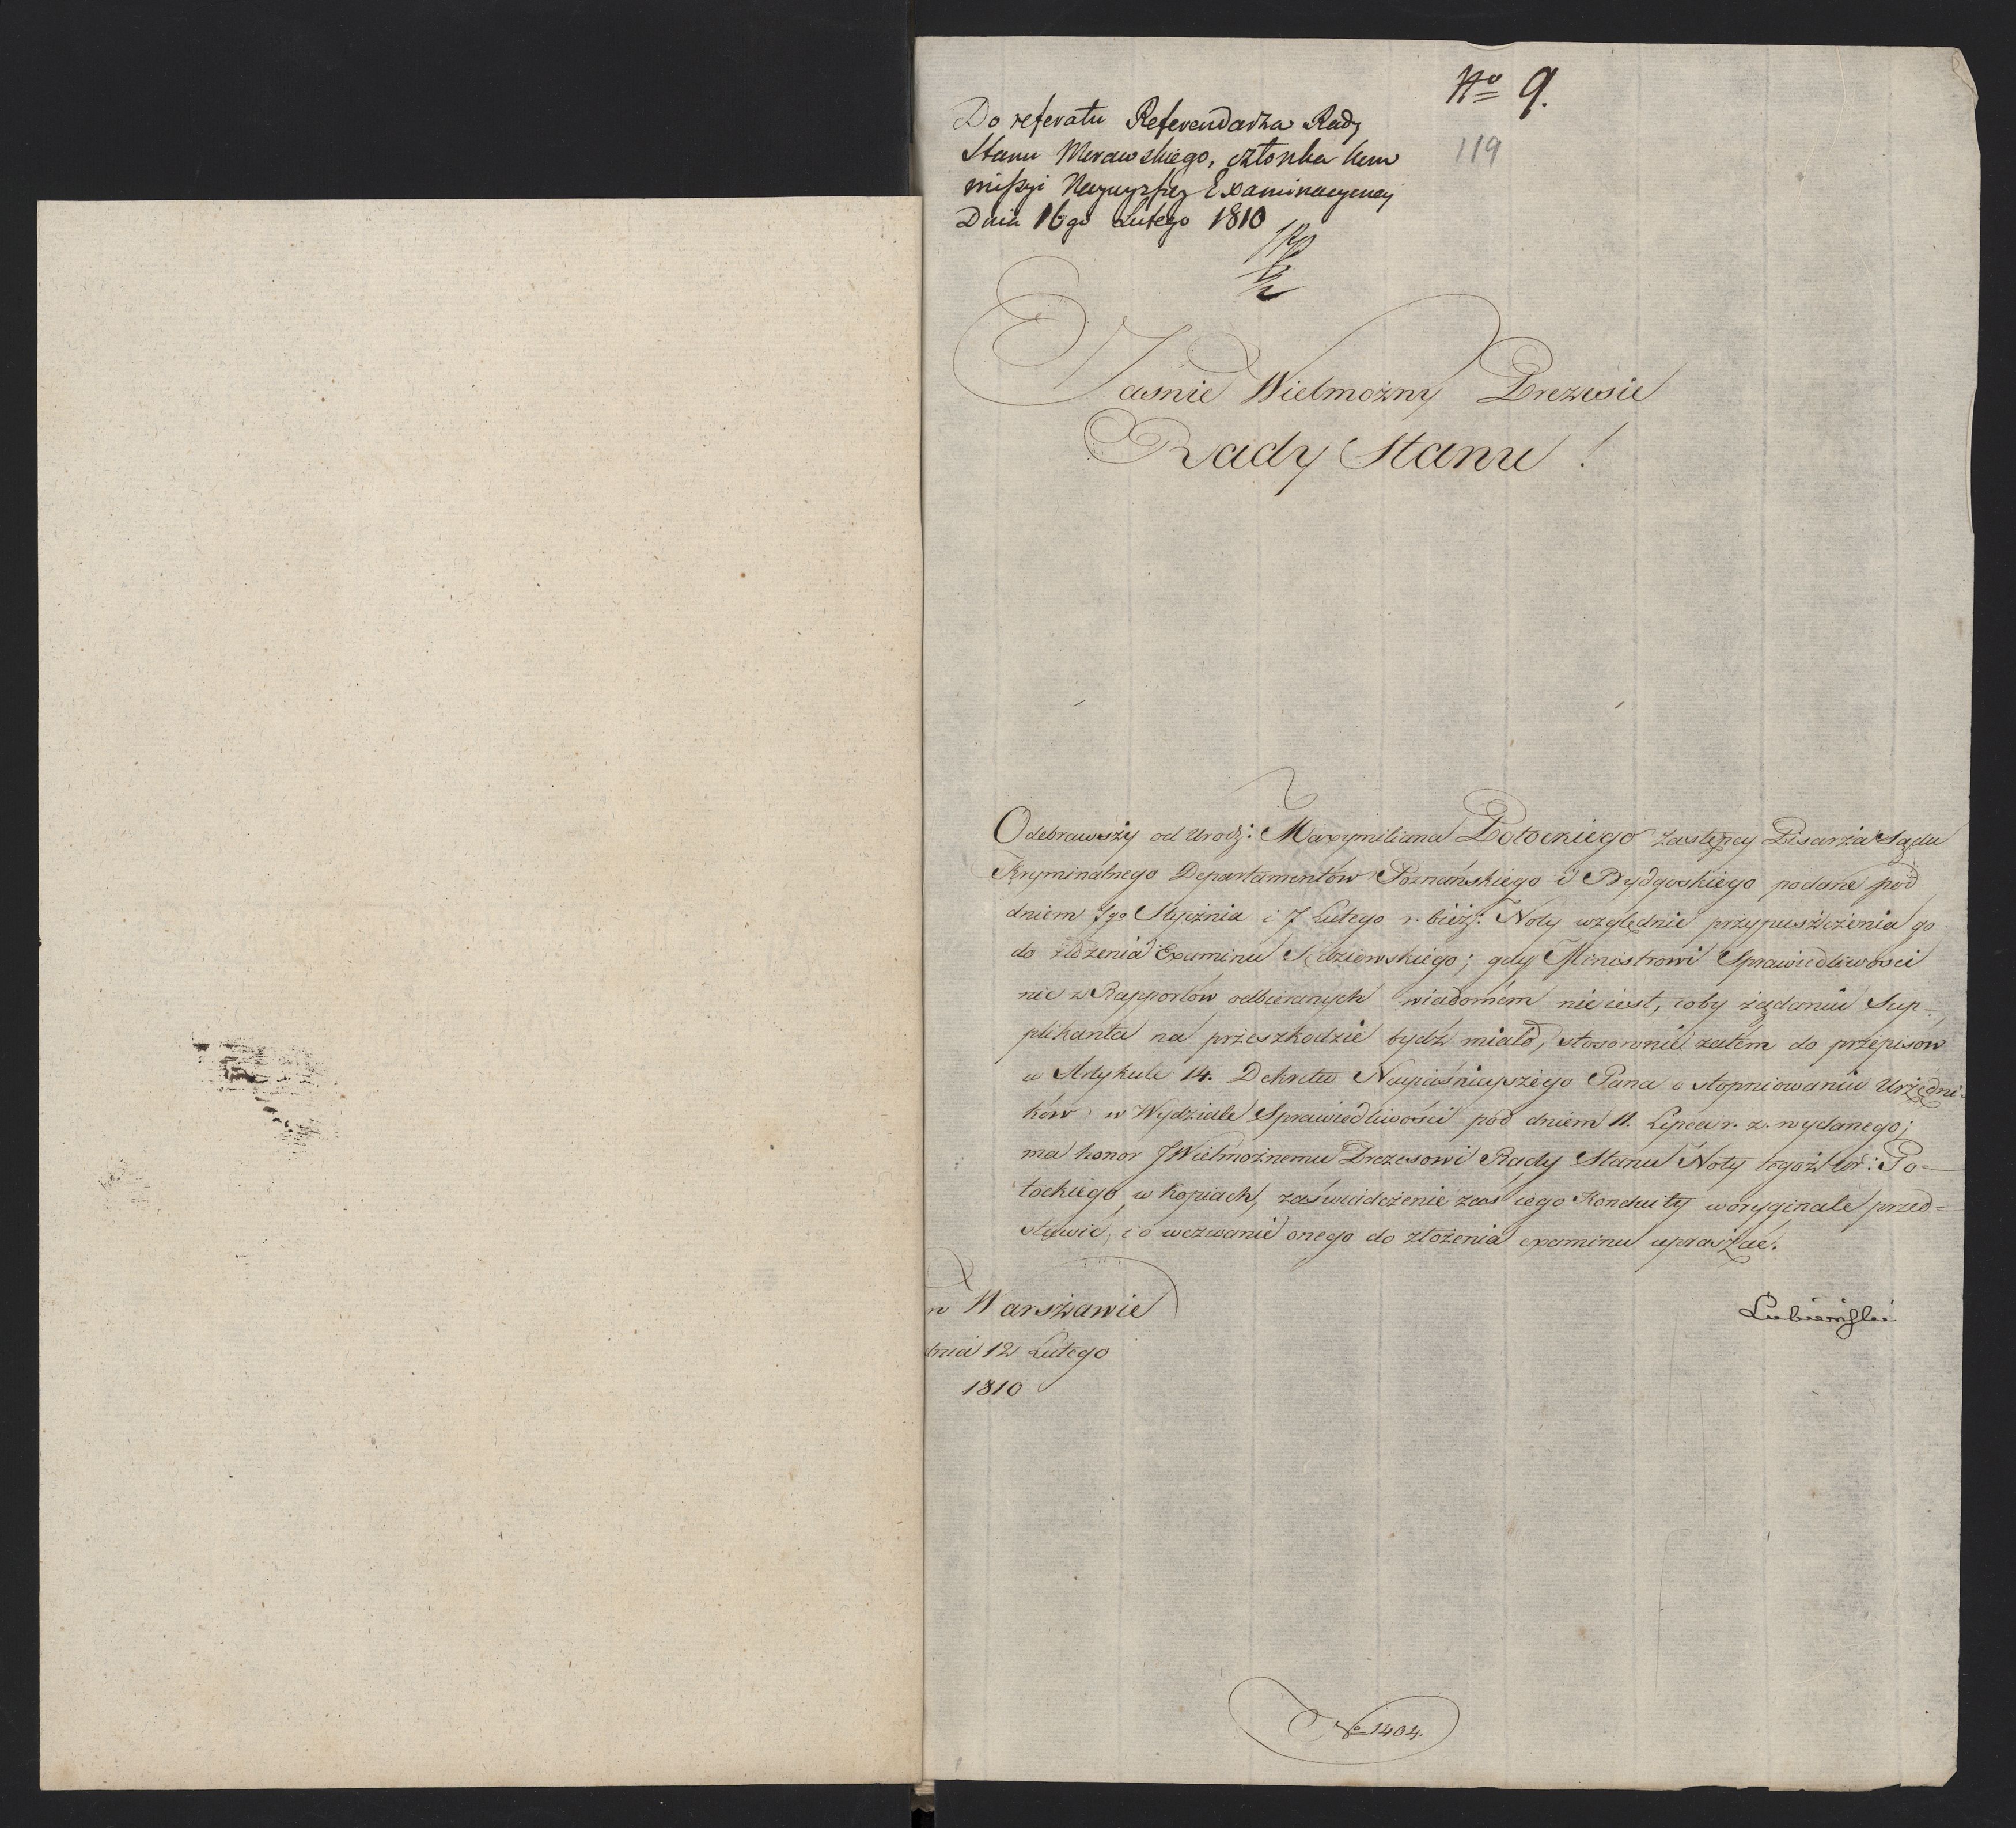 No 9.
119
Do referatu Referendarza Rady
Stanu Morawskiego, członka Kom
missyi Naywyższey Examinacyiney
Dnia 16go Lutego 1810
Jasnie Wielmożny Prezesie
Rady Stanu!
Odebrawszy od Urodz: Maxymiliana Potockiego Zastępcy Pisarza Sądu
Kryminalnego Departamentów Poznańskiego i Bydgoskiego podane pod
dniem Stycznia i 7 Lutego r. bież: Noty względnie przypuszczenia go
do złożenia Examinu Sędziowskiego; gdy Ministrowi Sprawiedliwości
nic z Rapportów odbieranych wiadomem nie iest, coby żądaniu Sup-
plikanta na przeszkodzie bydź miało, stosownie zatém do przepisów
w Artykule 14. Dekretu Nayiaśnieyszego Pana o stopniowaniu Urzędni-
ków w Wydziale Sprawiedliwości pod dniem 11. Lipca r. z. wydanego;
ma honor JWielmożnemu Prezesowi Rady Stanu Noty tegoż Ur: Po=
tockiego w kopiach, zaświadczenie zaś iego Konduity w oryginale przed=
stawić, i o wezwanie onego do złożenia examinu upraszać.
w Warszawie
dnia 12 Lutego
1810
Lubieński
No 1404.